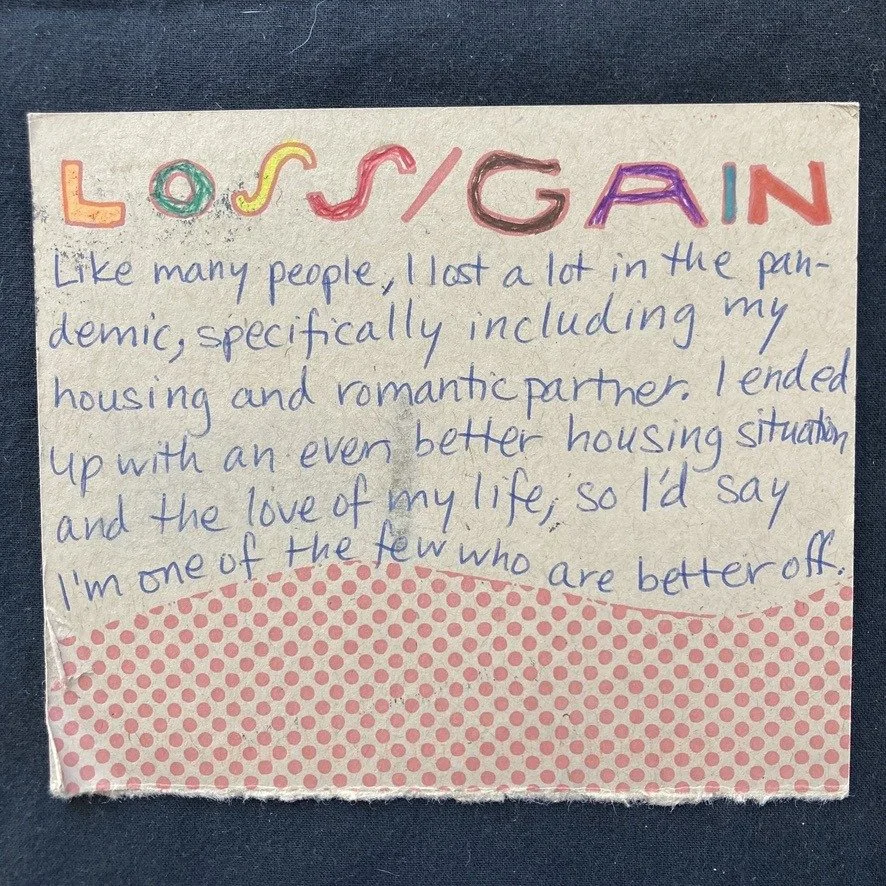 LOSS/GAIN
Like many people, I lost a lot in the pan-
demic, specifically including my
housing and romantic partner. I ended
up with an even better housing situation
and the love of my life, so I'd say
I'm one of the few who are better off.